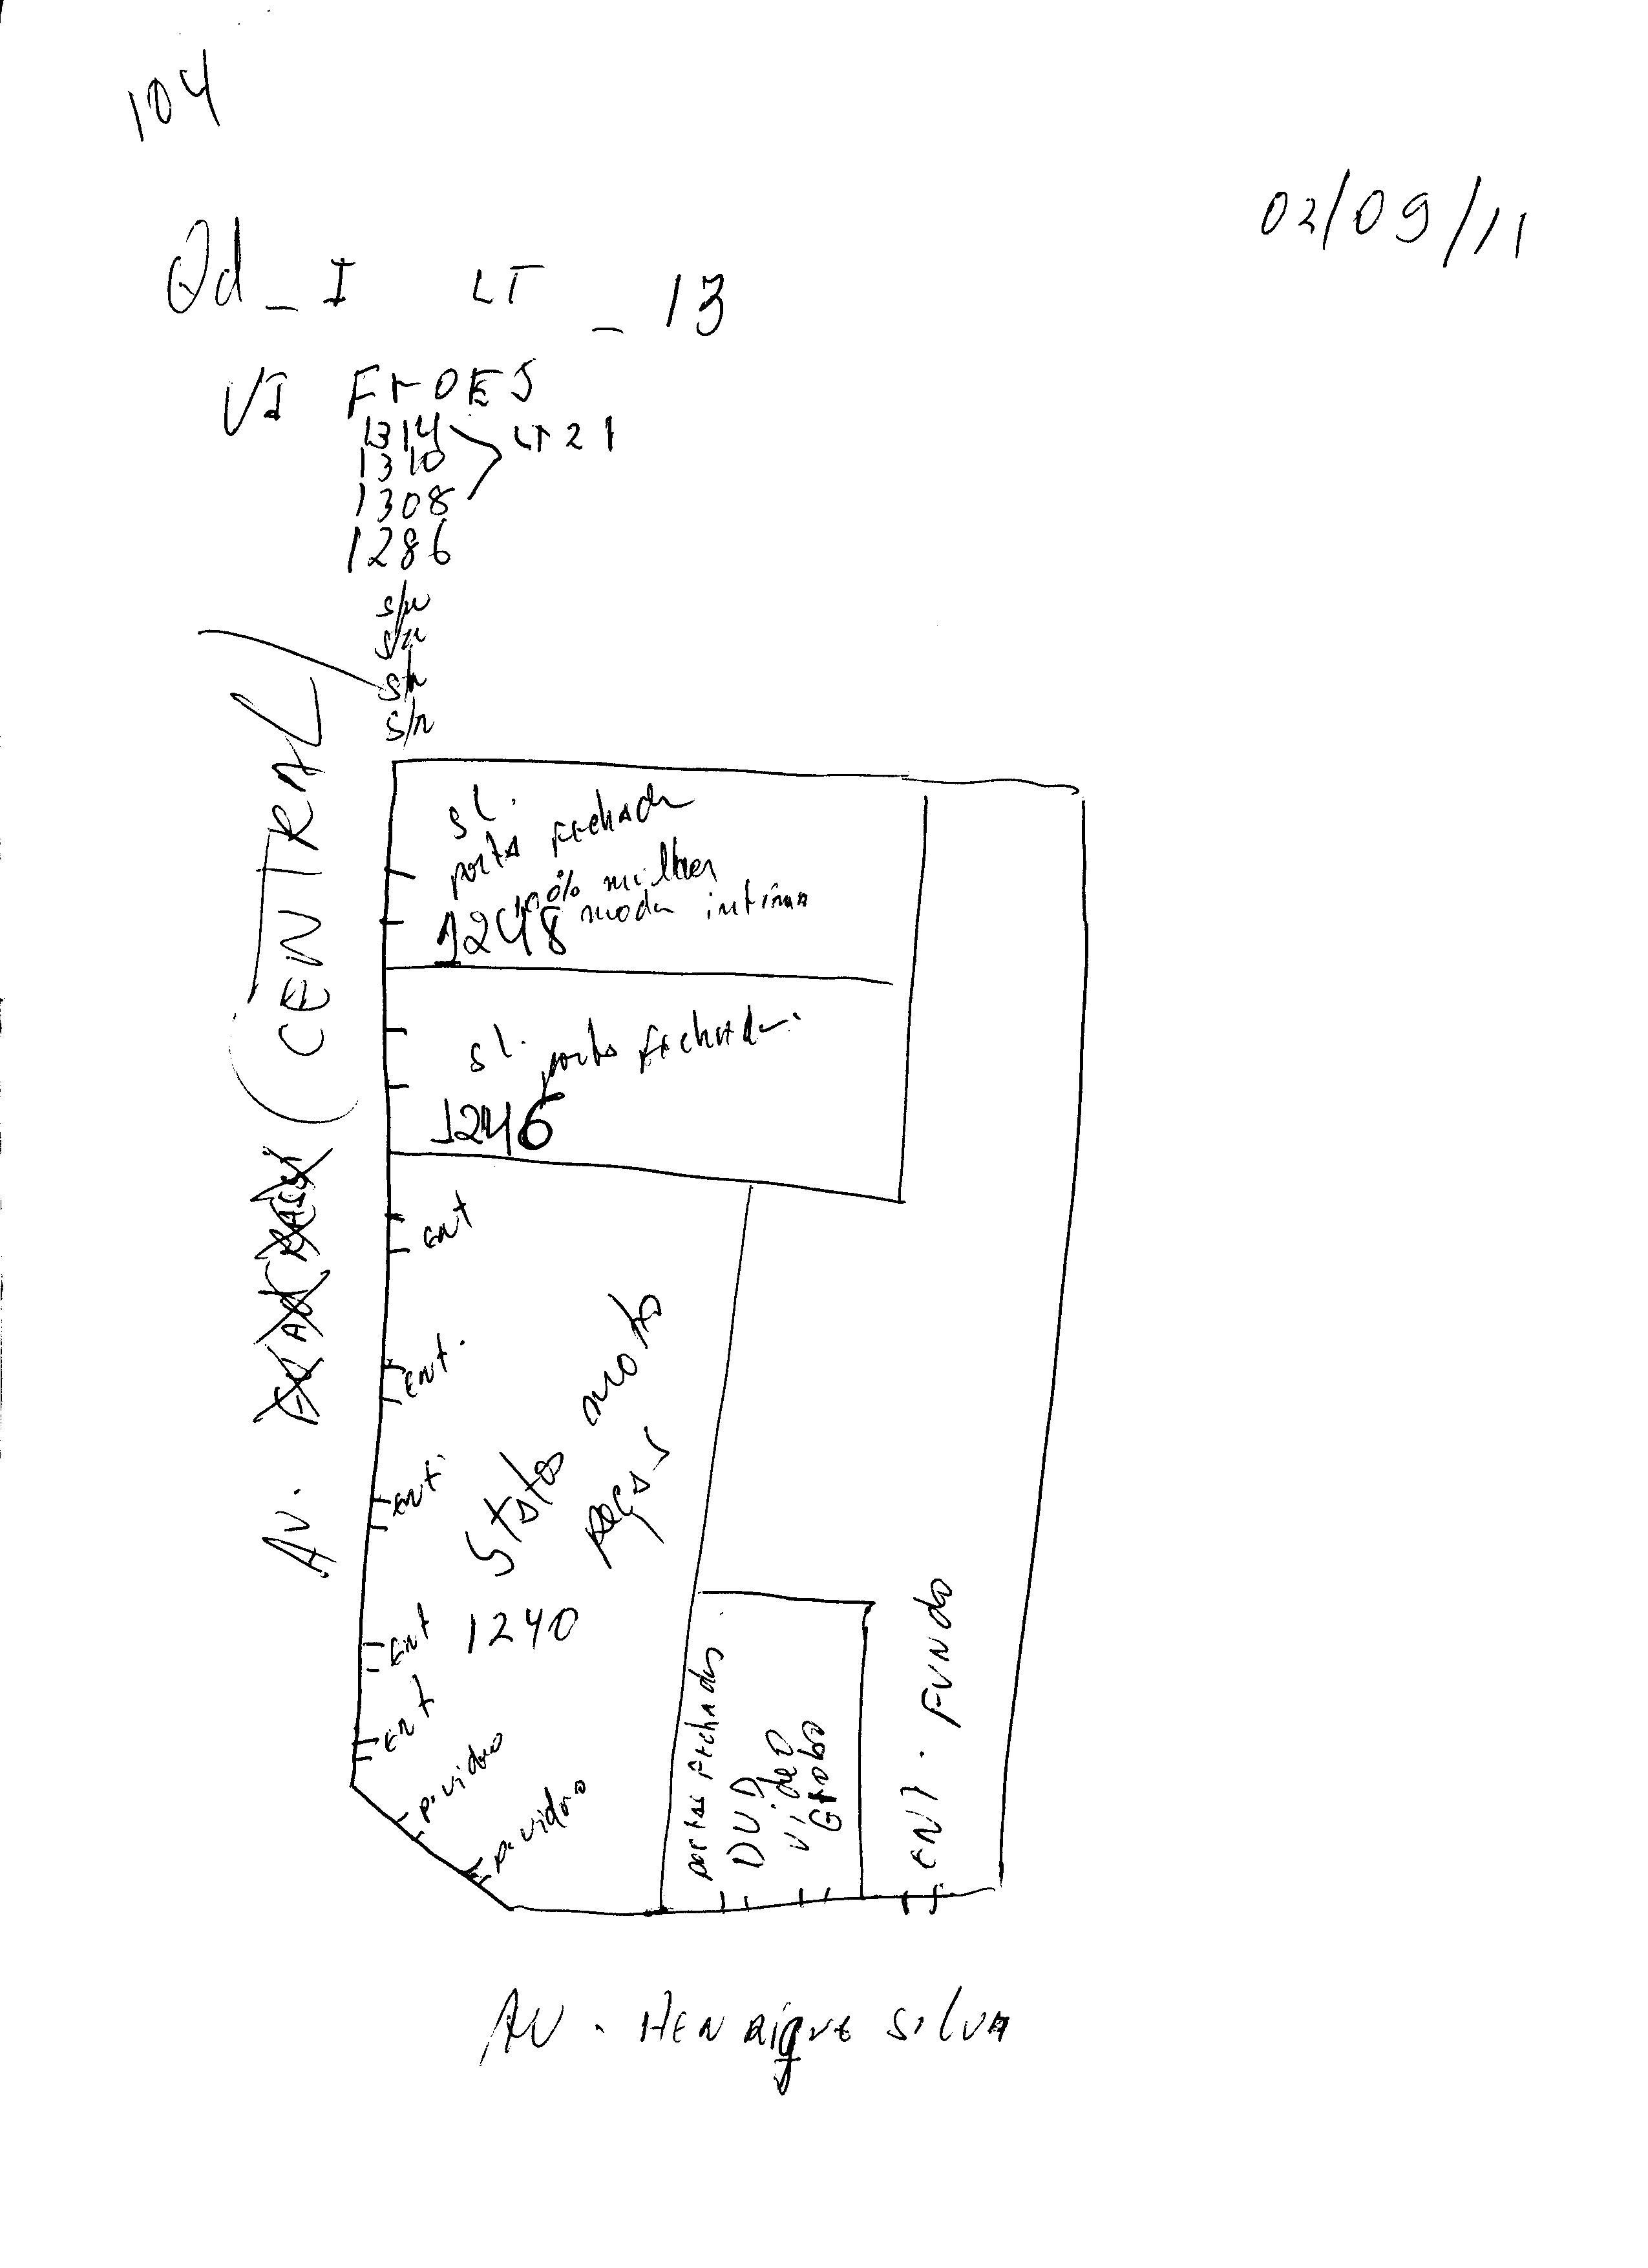 104
02/09/11
Qd _ I LT _ 13
VI FrOES
1314
1310
LT 21
1308
1286
s/n
s/n
s/n
s/n
AV.
(CENTRAL
sl.
porta fechada
100% mulher
moda intima
1248
sl. porta fechada.
1246
ENT
ENT.
ENT.
ENT
ENT
Statos moto
peças
1240
p. vidro
p. vidro
portas fechadas
DVD
Video
Globo
ENT. FUNDO
AV. HENRiqUE SilVA